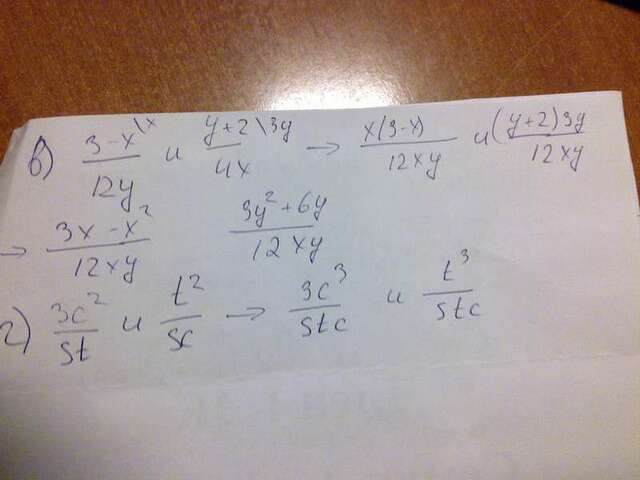 в) (3-x)/12y \x и (y+2)/4x \3y → x(3-x)/12xy и (y+2)3y/12xy
→ (3x-x²)/12xy (3y²+6y)/12xy
г) 3c²/5t и t²/5c → 3c³/5tc и t³/5tc